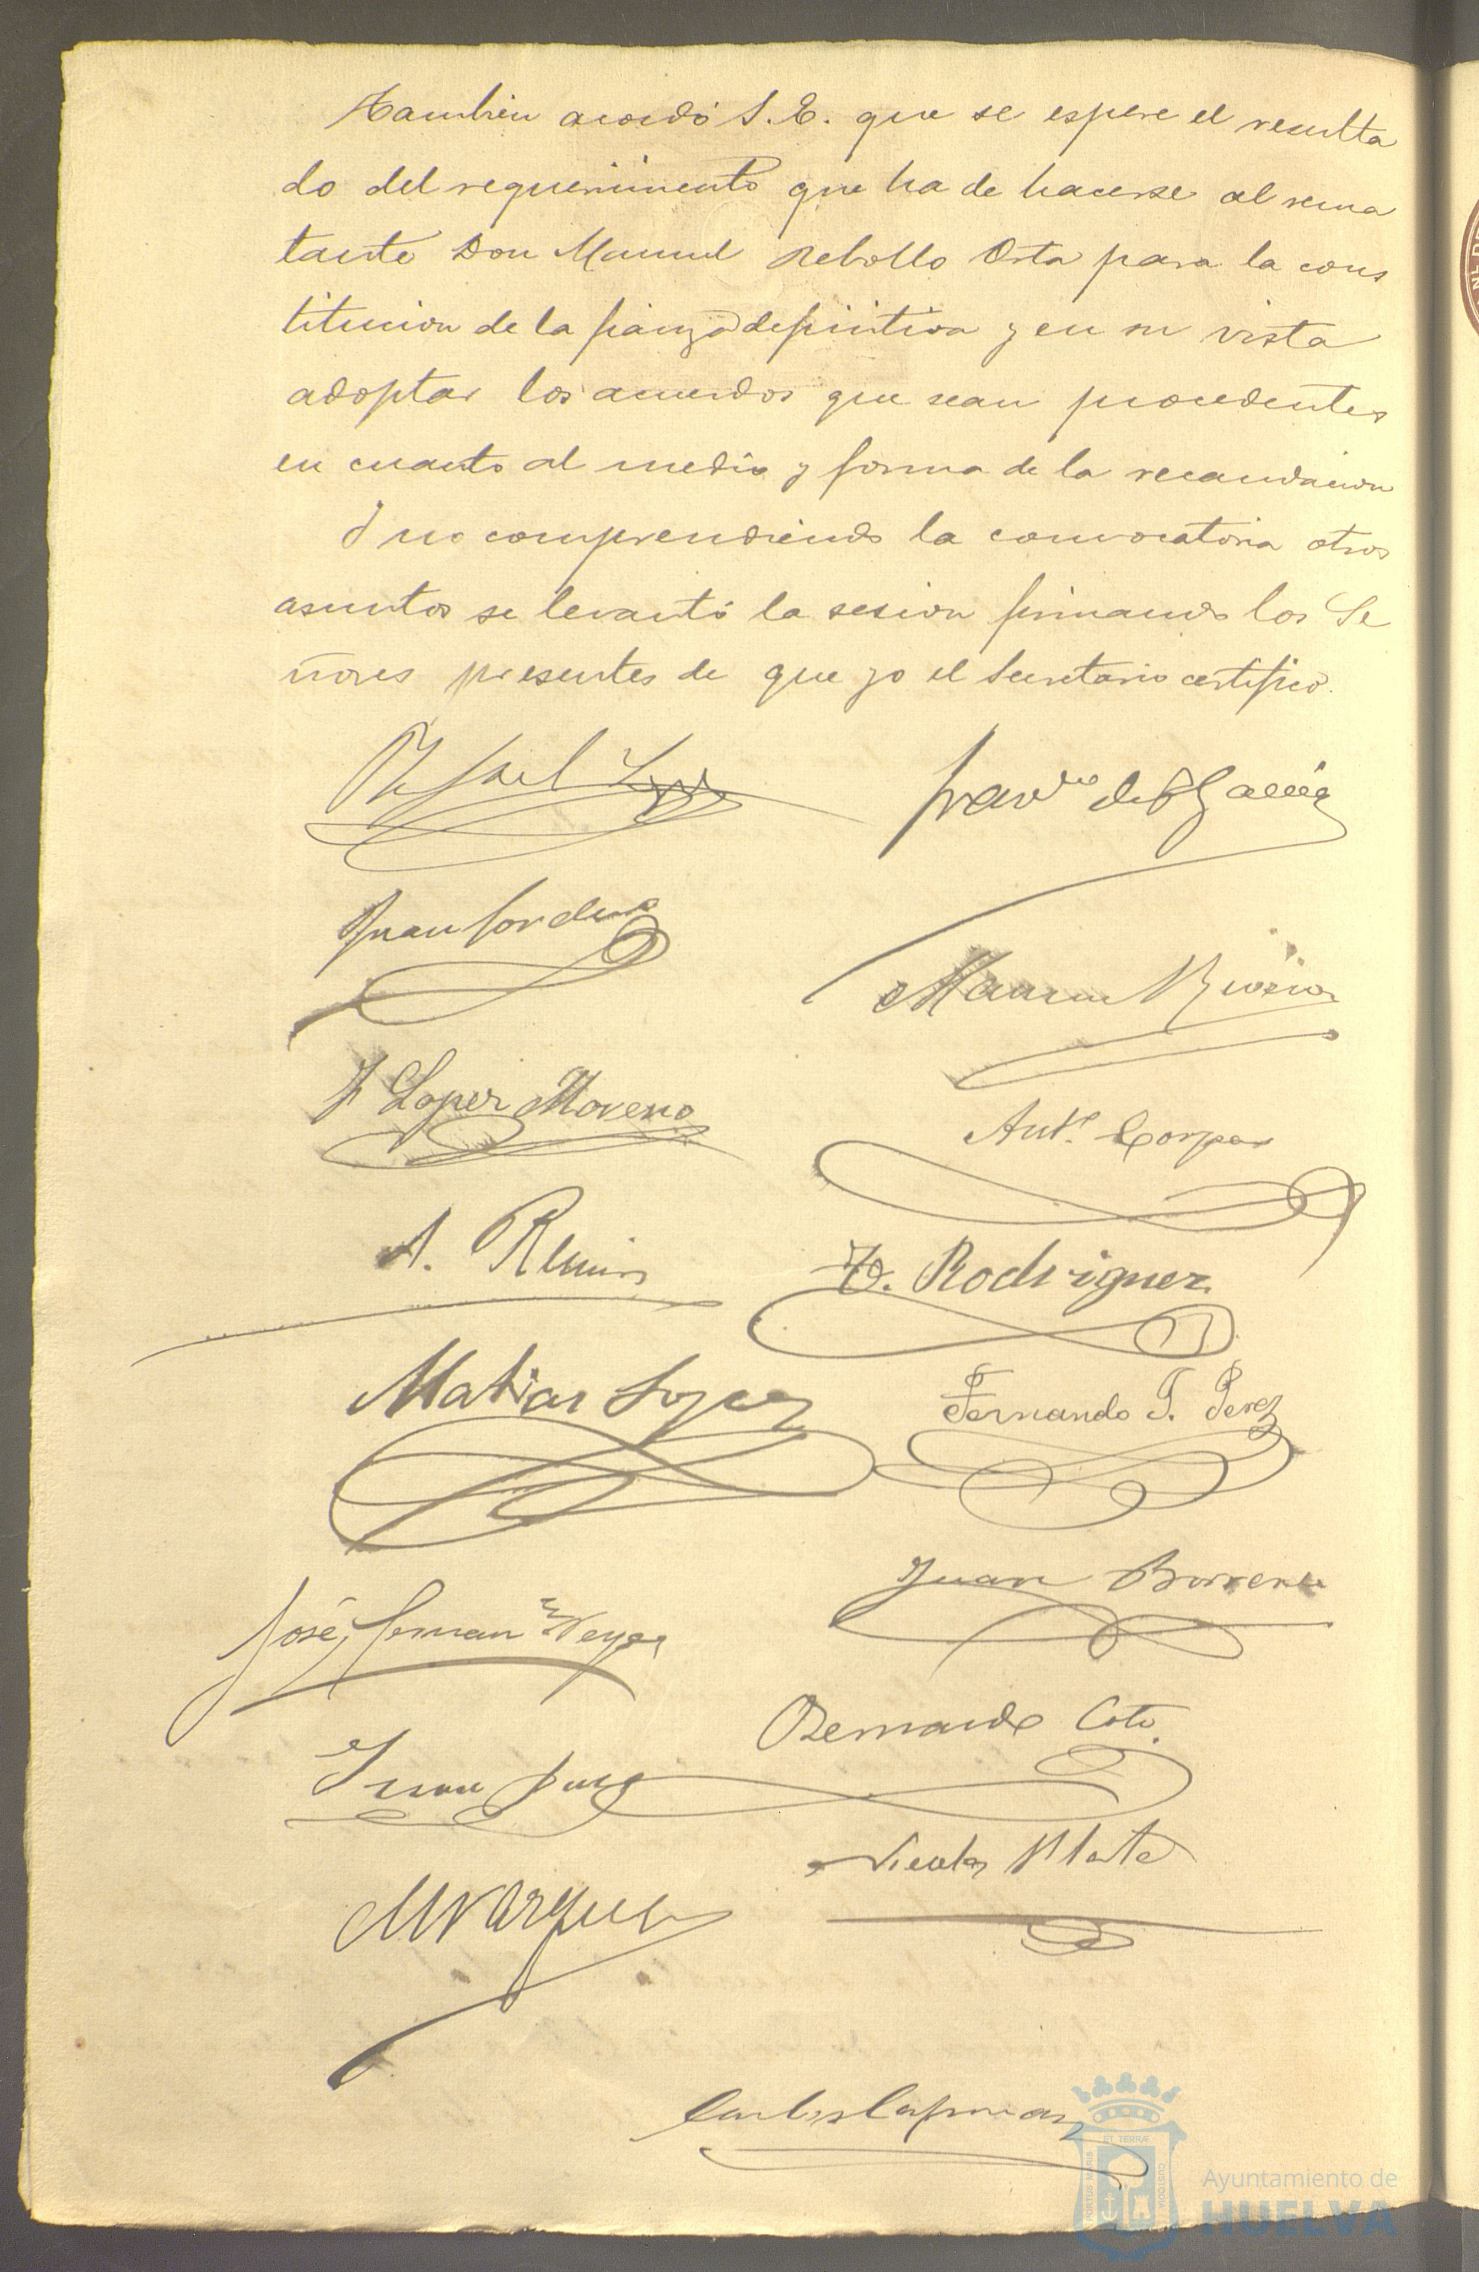 Tambien acordó S. E. que se espere el resulta
do del requerimiento que ha de hacerse al rema
tante Don Manuel Rebollo Orta para la cons
titucion de la fianza definitiva y en su vista
adoptar los acuerdos que sean procedentes
en cuanto al medio y forma de la recaudacion
Y no comprendiendo la convocatoria otros
asuntos se levantó la sesion firmando los Se
ñores presentes de que yo el Secretario certifico.
Rafael
Franco de P. Garcia
Juan
J Lopez Moreno
Antº Corpas
A.
Rodriguez
Matias Lopez
Fernando T. Perez
Juan Borrero
José
Bernardo Coto.
Juan
Nicolas
M Vazquez
ET TERRAE
PORTUS MARIS
CUSTODIA
Ayuntamiento de
HUELVA